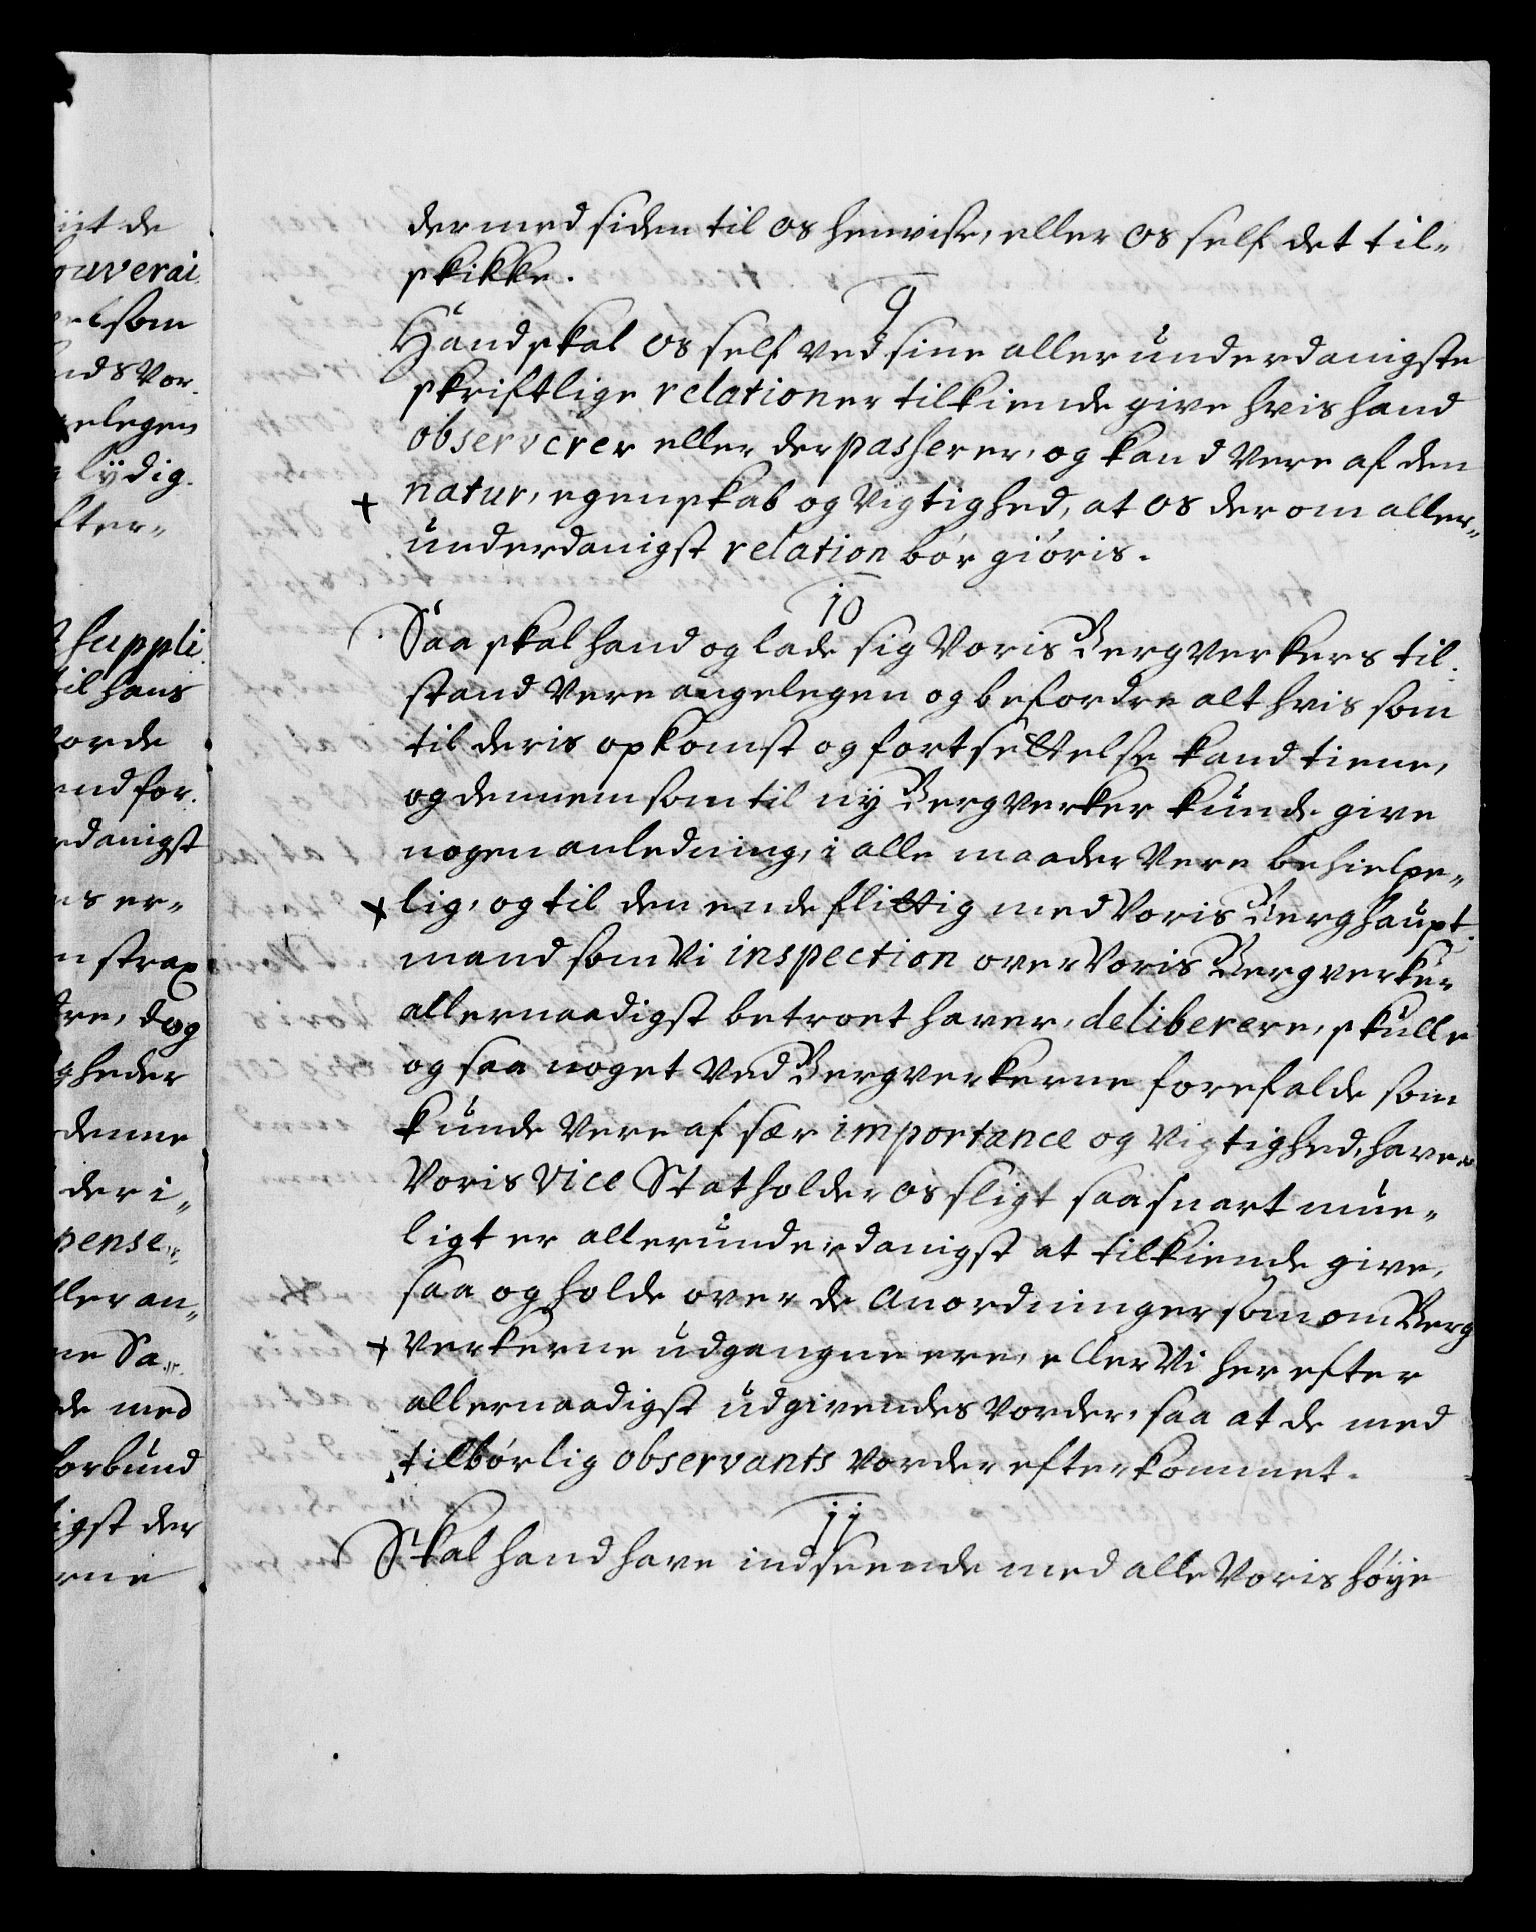 iigt de
ouverai
som
nds Vor.
elegen
lÿdig.
fter„
suppli
til hans
orde
end for.
rdanigst
ns er„
n strax
dre, dog
gheder
denne
der i„
pense„
ller an„
ne Sa„
de med
forbund
tigst der
rne
dermed siden til os henvise, eller os self det til„
skikke.
9
Hand skal os self ved sine allerunderdanigste
skriftlige relationer tilkiende give hvis hand
observerer eller der passerer, og kand vere af den
+ natur, egenskab og Vigtighed, at os derom aller„
underdanigst relation bør giøris.
10
Saa skal hand og lade sig Voris Bergverkers til.
stand vere angelegen og befordre alt hvis som
til deris opkomst og fortsettelse kand tiene,
og dennem som til nÿ Bergverker kunde give
nogen anledning, i alle maader Vere behielpe„
+ lig, og til den ende flittig med Voris Berghaupt.
mand som Vi inspection over Voris Bergverker
allernaadigst betroet haver, deliberere, skulle
og saa noget ved Bergverkerne forefalde som
kunde Vere af sær importance og Vigtighed, haver
Voris Vice Statholder os sligt saa snart mue„
ligt er allerunderdanigst at tilkiende give,
saa og holde over de Anordninger som om Berg
+ verkerne udgangne ere, eller Vi herefter
allernaadigst udgivendes vorder, saa at de med
tilbørlig observants vorder efterkommet.
11
Skal hand have indseende med alle Voris høÿe